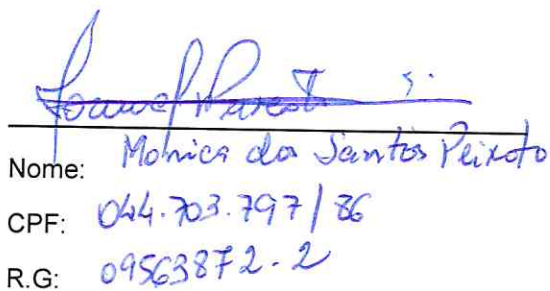 Nome: Monica dos Santos Peixoto
CPF: 044.703.797/86
R.G: 09563872-2